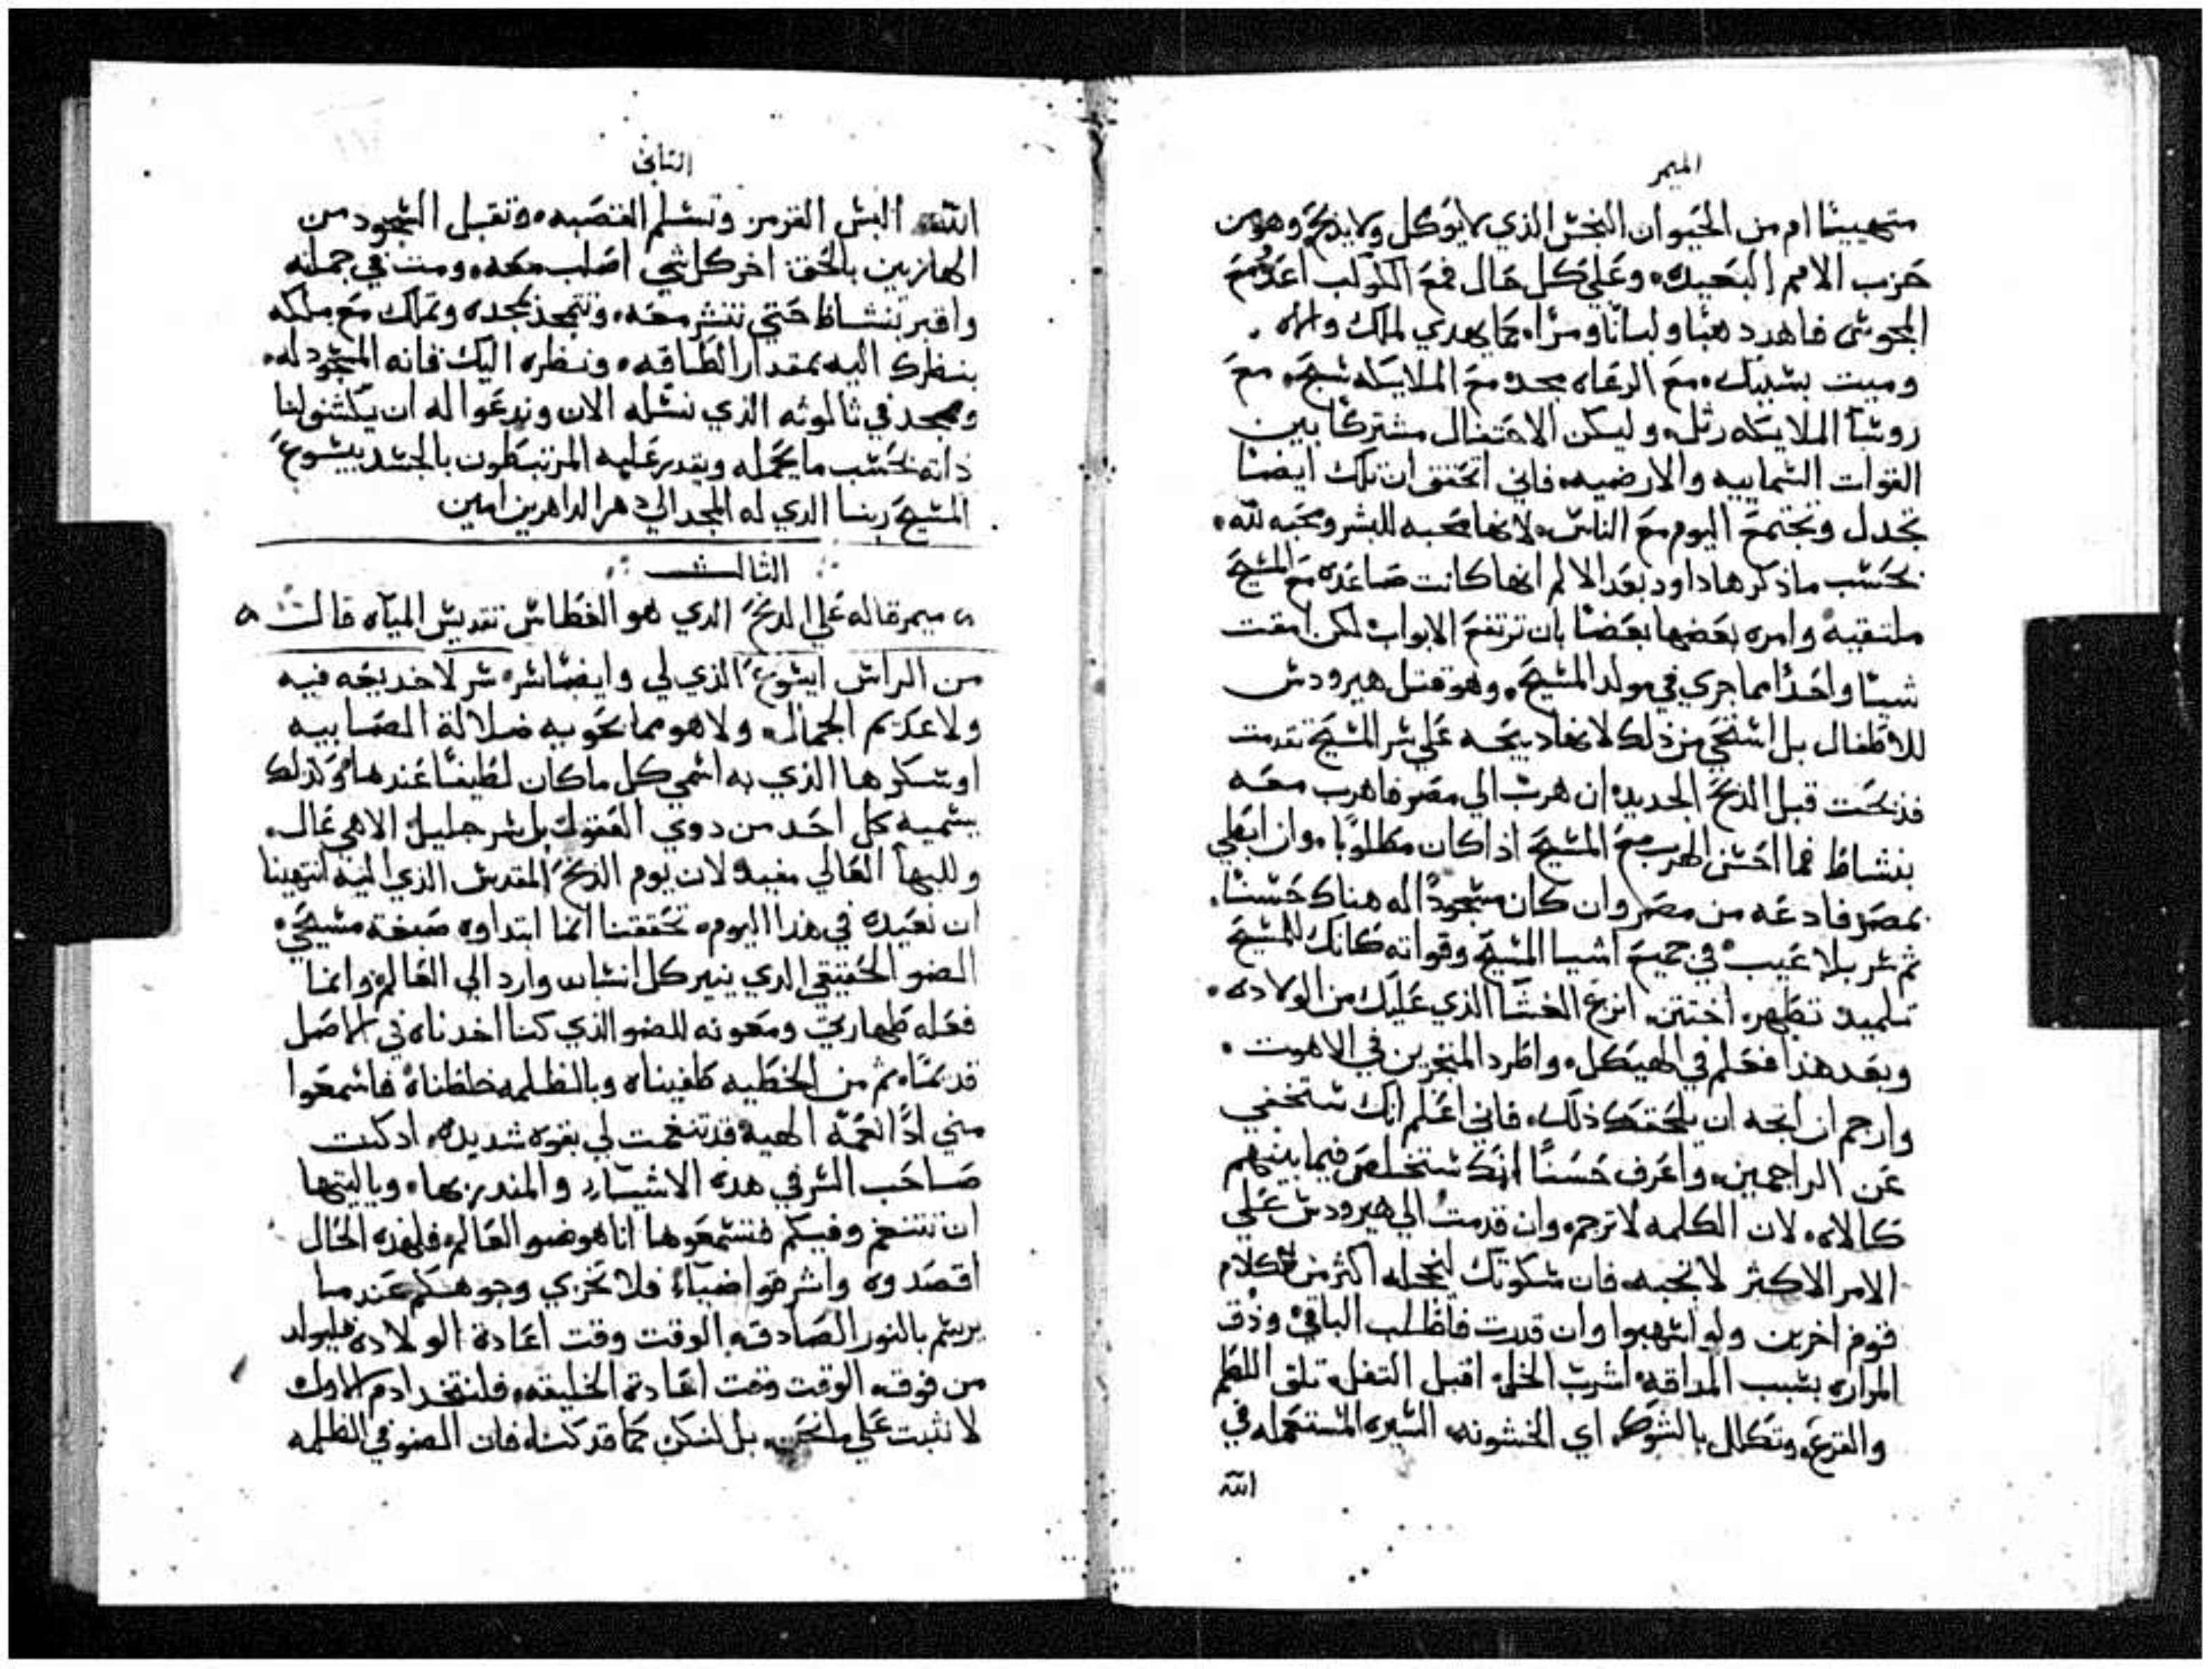 الميمر
متهيئا ام من الحيوان النجس الذي لا يوكل ولا يذبح وهو من
حزب الامم البعيده. وعلي كل حال فمع الكوكب اعدُ مع
المجوس فاهد ذهبا ولبانا ومرا. كما يهدي لملك واله.
وميت بسببك. مع الرعاه مجد. مع الملايكه سبح. مع
روسا الملايكه رتل. وليكن الاحتفال مشتركا بين
القوات السماييه والارضيه. فاني اتحقق ان تلك ايضا
تجدل وتجتمع اليوم مع الناس. لانها محبه للبشر ومحبه لله.
بحسب ما ذكرها داود بعد الالم انها كانت صاعده مع المسيح
ملتقيه وامره بعضها بعضا بان ترتفع الابواب لكن امقت
شيئا واحدا مما جري في مولد المسيح. وهو قتل هيرودس
للاطفال بل استحي من ذلك لانها ذبيحه علي سر المسيح تقدمت
فذبحت قبل الذبح الجديد. ان هرب الي مصر فاهرب معه
بنشاط فما احسن الهرب مع المسيح اذا كان مطلوبا. وان ابطي
بمصر فادعه من مصر وان كان مسجودا له هناك حسنا.
ثم سر بلا عيب في جميع اشيا المسيح وقواته كانك للمسيح
تلميد تطهر. اختتن. انزع الغشا الذي عليك من الولاده.
وبعد هذا فعلم في الهيكل. واطرد المتجرين في الاهوت.
وارجم ان اتجه ان يلحقك ذلك. فاني اعلم انك ستختفي
عن الراجمين. واعرف حسنا انك ستخلص فيما بينهم
كالاه. لان الكلمه لا ترجم. وان قدمت الي هيرودس علي
الامر الاكثر لا تجبه. فان سكوتك ليخجله اكثر من كلام
قوم اخرين ولو اسهبوا وان قدرت فاطلب الباقي وذق
المراره بسبب المذاقه. اشرب الخل. اقبل التفل. تلق اللطم
والقرع. وتكلل بالشوك. اي الخشونه. السيره المستعمله في
الله
الثاني
الله. البس القرمز وتسلم القصبه. وتقبل السجود من
الهازيين بالحق. اخر كل شي اصلب معه. ومت في جملته
واقبر بنشاط حتي تنشر معه. وتتمجد بمجده وتملك مع ملكه
بنظرك اليه بمقدار الطاقه. ونظره اليك فانه المسجود له.
وممجد في ثالوثه الذي نسله الان وندعوا له ان يكشف لنا
ذاته بحسب ما يحمله ويقدر عليه المرتبطون بالجسد بيسوع
المسيح ربنا الذي له المجد الي دهر الداهرين امين
الثالث
ميمر قاله علي الدنح الدي هو الغطاس تقديس المياه قالت
من الراس ايسوع الذي لي وايضا سره سر لا خديعه فيه
ولا عديم الجمال. ولا هو مما تحويه ضلالة الصابيه
او سكرها الذي به اسمي كل ما كان لطيفا عندها. وكذلك
يسميه كل احد من دوي العقول. بل سر جليل الاهي عال.
وللبها العالي مفيد. لان يوم الدنح المقدس الذي اليه انتهينا
ان نعيده في هذا اليوم. تحققنا انما ابتداوه صبغة مسيحي.
الضو الحقيقي الدي ينير كل انسان وارد الي العالم. وانما
فعله طهارتي ومعونه للضو الذي كنا اخدناه في الاصل
قديما. ثم من الخطيه طفيناه وبالظلمه خلطناه. فاسمعوا
مني اذا نغمة الهيه قد تنغمت لي بقوه شديده. اد كنت
صاحب السر في هده الاشيا. والمندر بها. وياليتها
ان تتنغم وفيكم فتسمعوها انا هو ضو العالم. فلهده الحال
اقصدوه واشرقوا ضياء فلا تخزي وجوهكم عندما
يرسم بالنور الصادق. الوقت وقت اعادة الولاده فليولد
من فوق. الوقت وقت اعادة الخليقه. فلنتخد ادم الاول
لا نثبت علي ما نحن. بل لنكن كما قد كنا. فان الضو في الظلمه